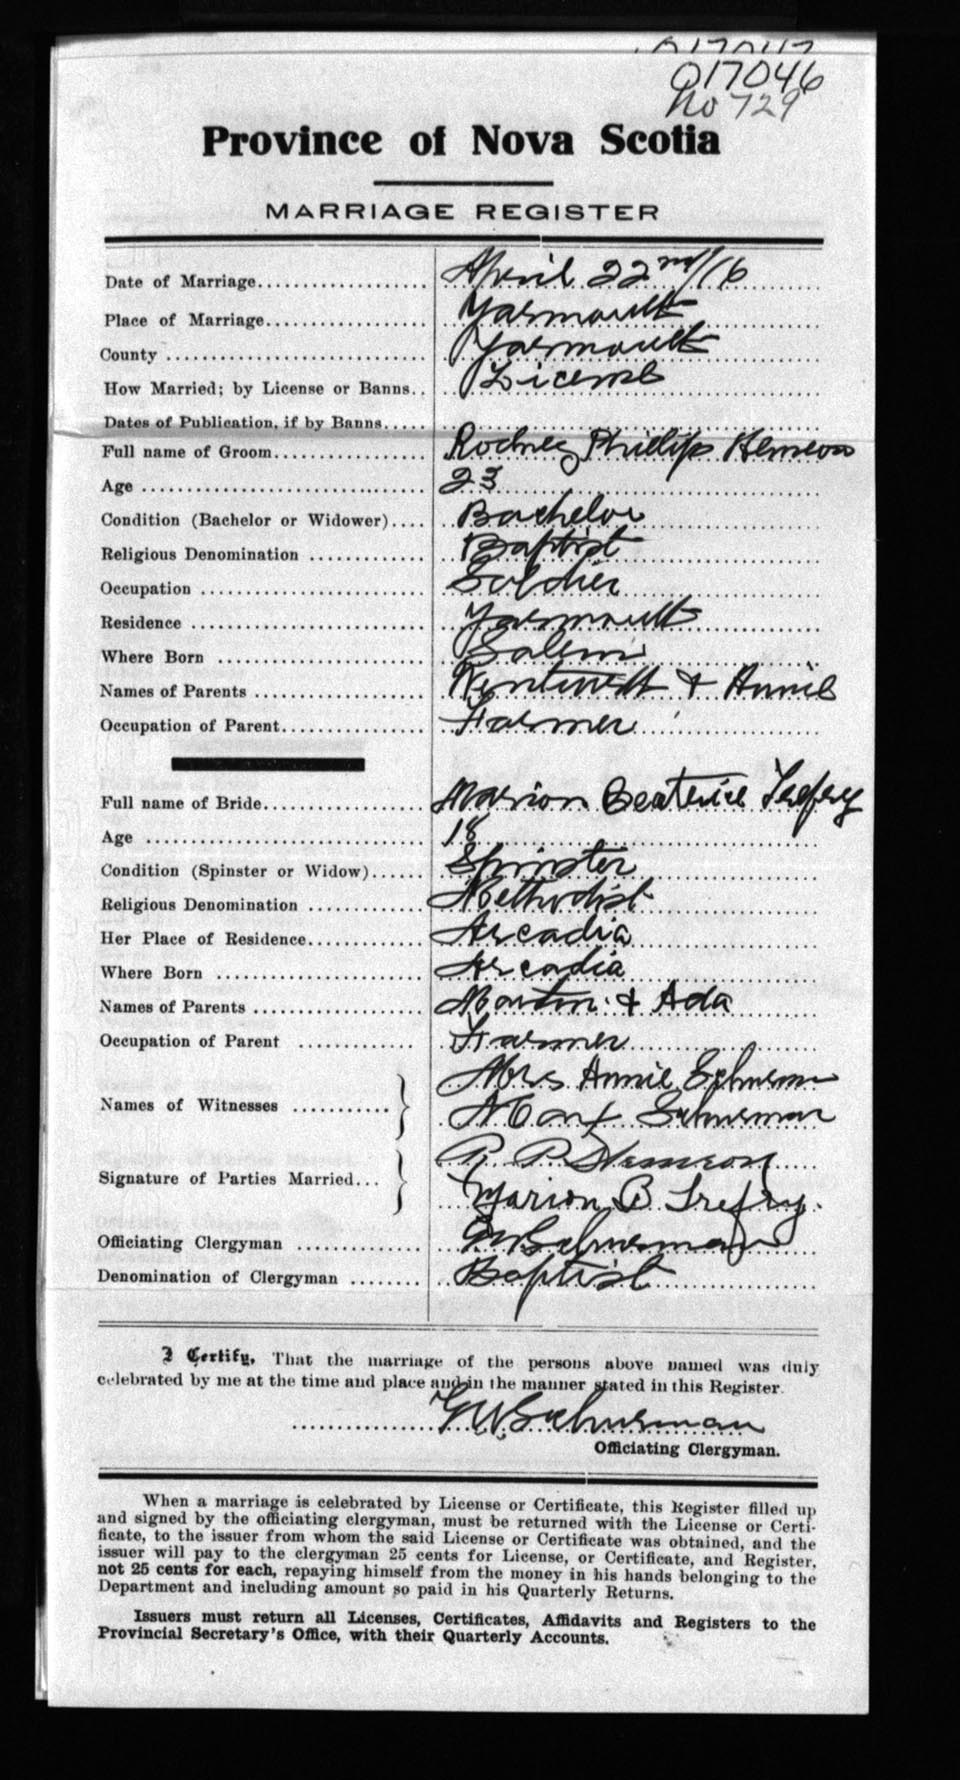 017046
No 729
Province of Nova Scotia
MARRIAGE REGISTER
Date of Marriage April 22nd/16
Place of Marriage Yarmouth
County Yarmouth
How Married; by License or Banns License
Dates of Publication, if by Banns
Full name of Groom Rodney Phillip Hemeon
Age 23
Condition (Bachelor or Widower) Bachelor
Religious Denomination Baptist
Occupation Soldier
Residence Yarmouth
Where Born Salem
Names of Parents Wentworth & Annie
Occupation of Parent Farmer
Full name of Bride Marion Beatrice Trefry
Age 18
Condition (Spinster or Widow) Spinster
Religious Denomination Methodist
Her Place of Residence Arcadia
Where Born Arcadia
Names of Parents & Ada
Occupation of Parent Farmer
Mrs Annie Schurman
Names of Witnesses
Schurman
R. P. Hemeon
Signature of Parties Married
Marion B Trefry.
Officiating Clergyman G W Schurman
Denomination of Clergyman Baptist
I Certify, That the marriage of the persons above named was duly
celebrated by me at the time and place and in the manner stated in this Register.
G W Schurman
Officiating Clergyman.
When a marriage is celebrated by License or Certificate, this Register filled up
and signed by the officiating clergyman, must be returned with the License or Certi-
ficate, to the issuer from whom the said License or Certificate was obtained, and the
issuer will pay to the clergyman 25 cents for License, or Certificate, and Register,
not 25 cents for each, repaying himself from the money in his hands belonging to the
Department and including amount so paid in his Quarterly Returns.
Issuers must return all Licenses, Certificates, Affidavits and Registers to the
Provincial Secretary's Office, with their Quarterly Accounts.